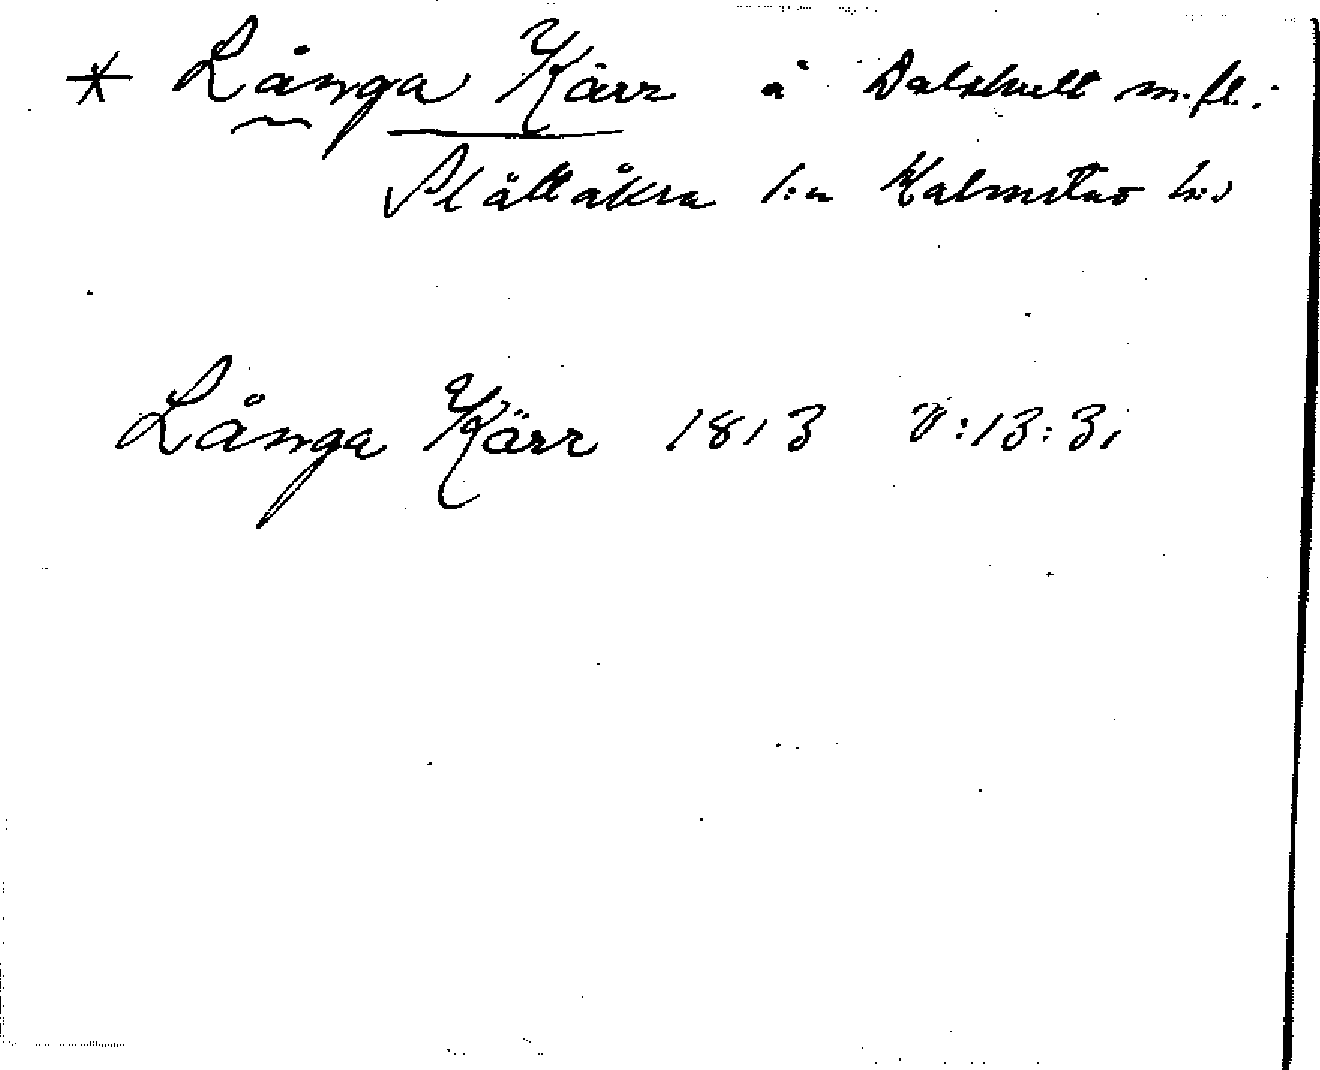 * Långa Kärr å Dalshult m.fl.:
Slättåkra s:n Halmstad h:d
Långa Kärr 1813 V:13:31